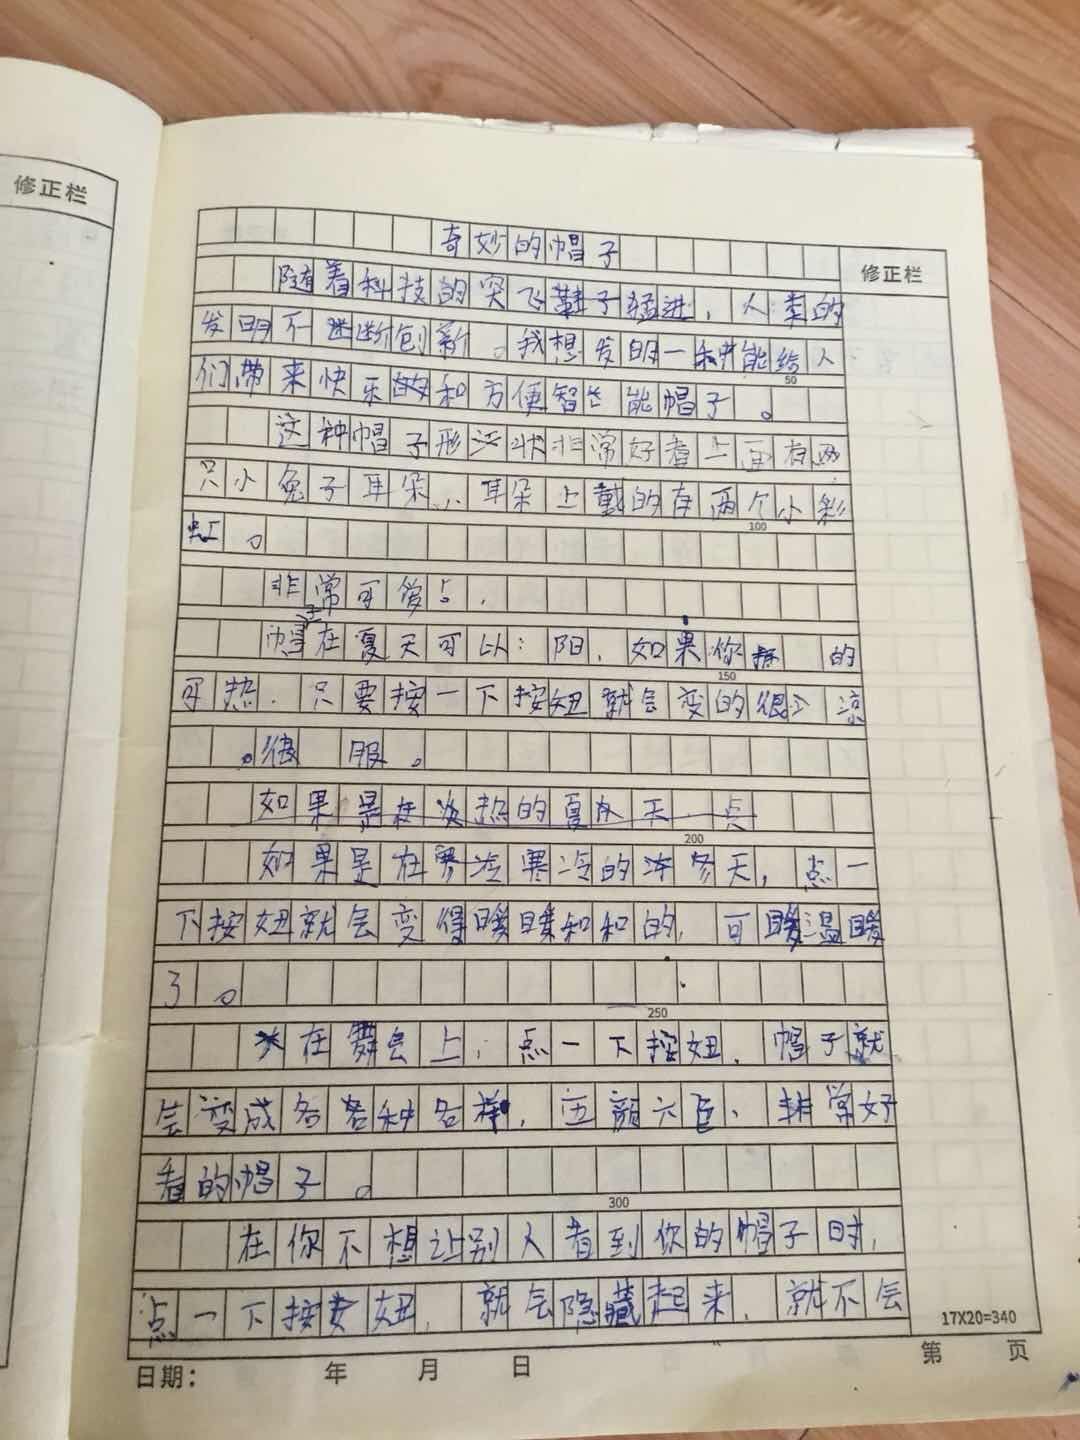 修正栏
奇妙的帽子
修正栏
随着科技的突飞鞋子猛进，人类的
发明不断创新。我想发明一种能给人
50
们带来快乐和方便智能帽子。
这种帽子形状非常好看上面有两
只小兔子耳朵，耳朵上戴的有两个小彩
100
虹。
非常可爱。
帽子在夏天可以：阳，如果你 的
150
可热，只要按一下按妞就会变的很 凉
。很 服。
如果是在炎热的夏天一点
200
如果是在寒冷寒冷的冬天，点一
下按妞就会变得暖暖和和的，可暖温暖
了。
250
在舞会上，点一下按妞，帽子就
会变成各各种各样，五颜六色、非常好
看的帽子。
300
在你不想让别人看到你的帽子时，
点一下按妞，就会隐藏起来，就不会
17X20=340
日期： 年 月 日
第 页